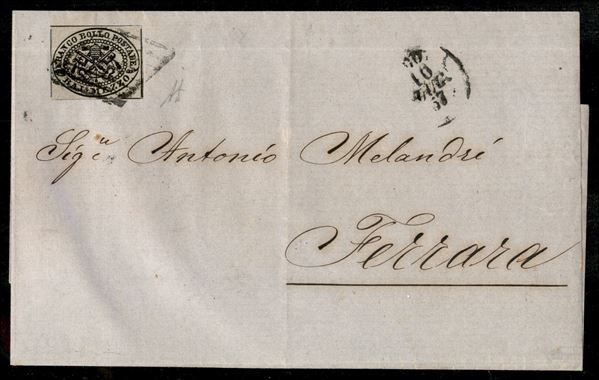 FRANCO BOLLO POSTALE
10
LUG
57
Sig.u Antonio Melandri
Ferrara